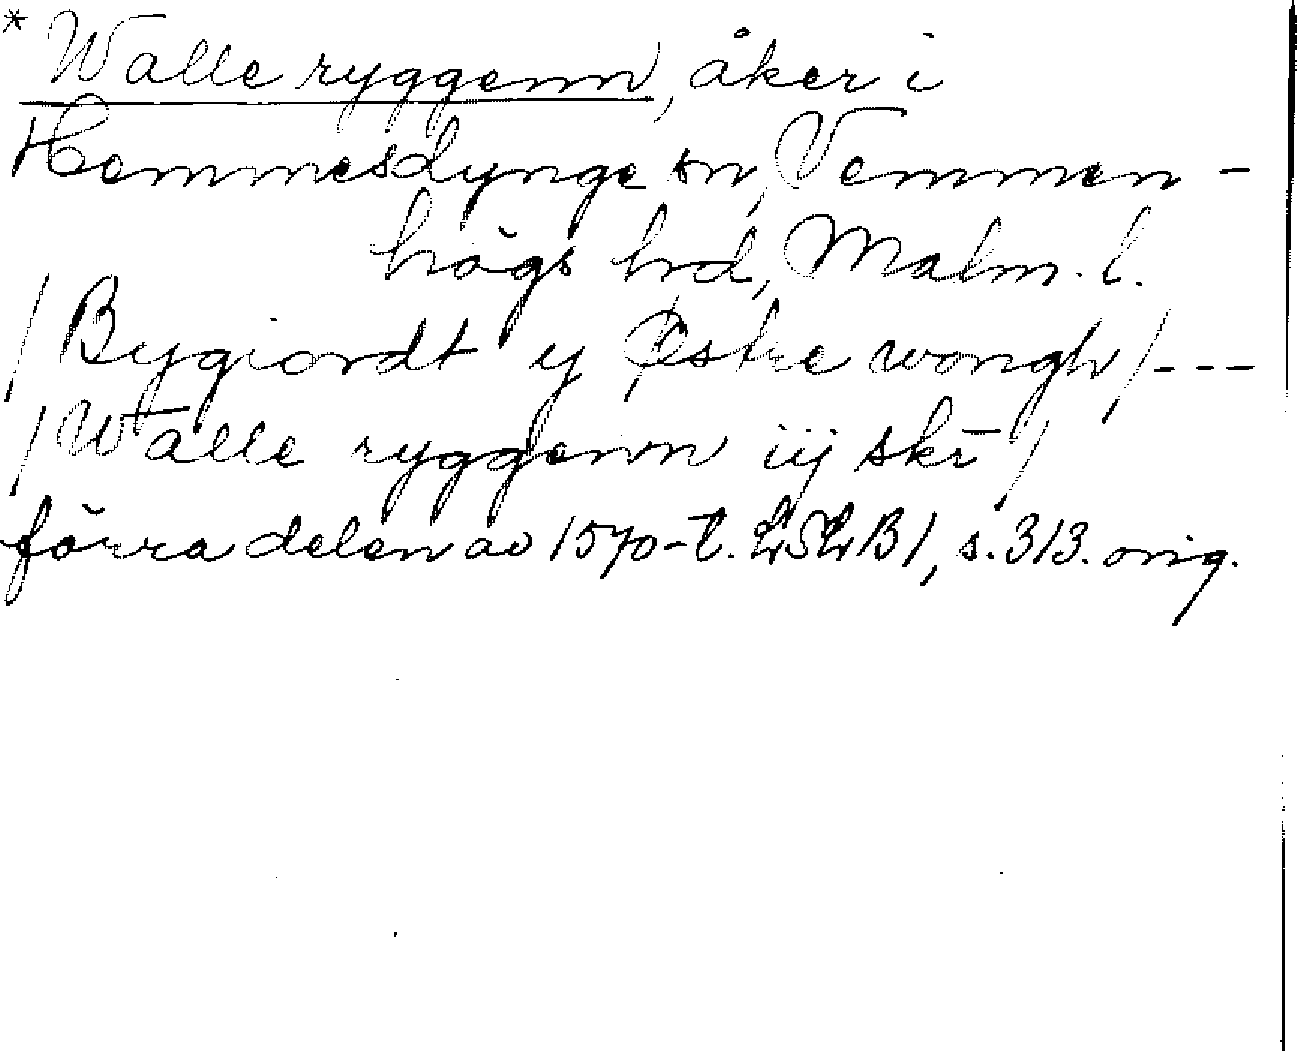 * Walle ryggenn, åker i
Hemmesdynge sn, Vemmen-
högs hd, Malm. l.
/Bygiordt y Østre wongh/---
/Walle ryggenn iij skr̄/
förra delen av 1570-t. LSLB1, s. 313. orig.